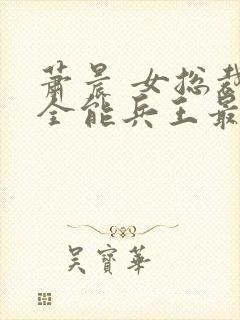 萧晨 女总裁
全能兵王最
吴寶華